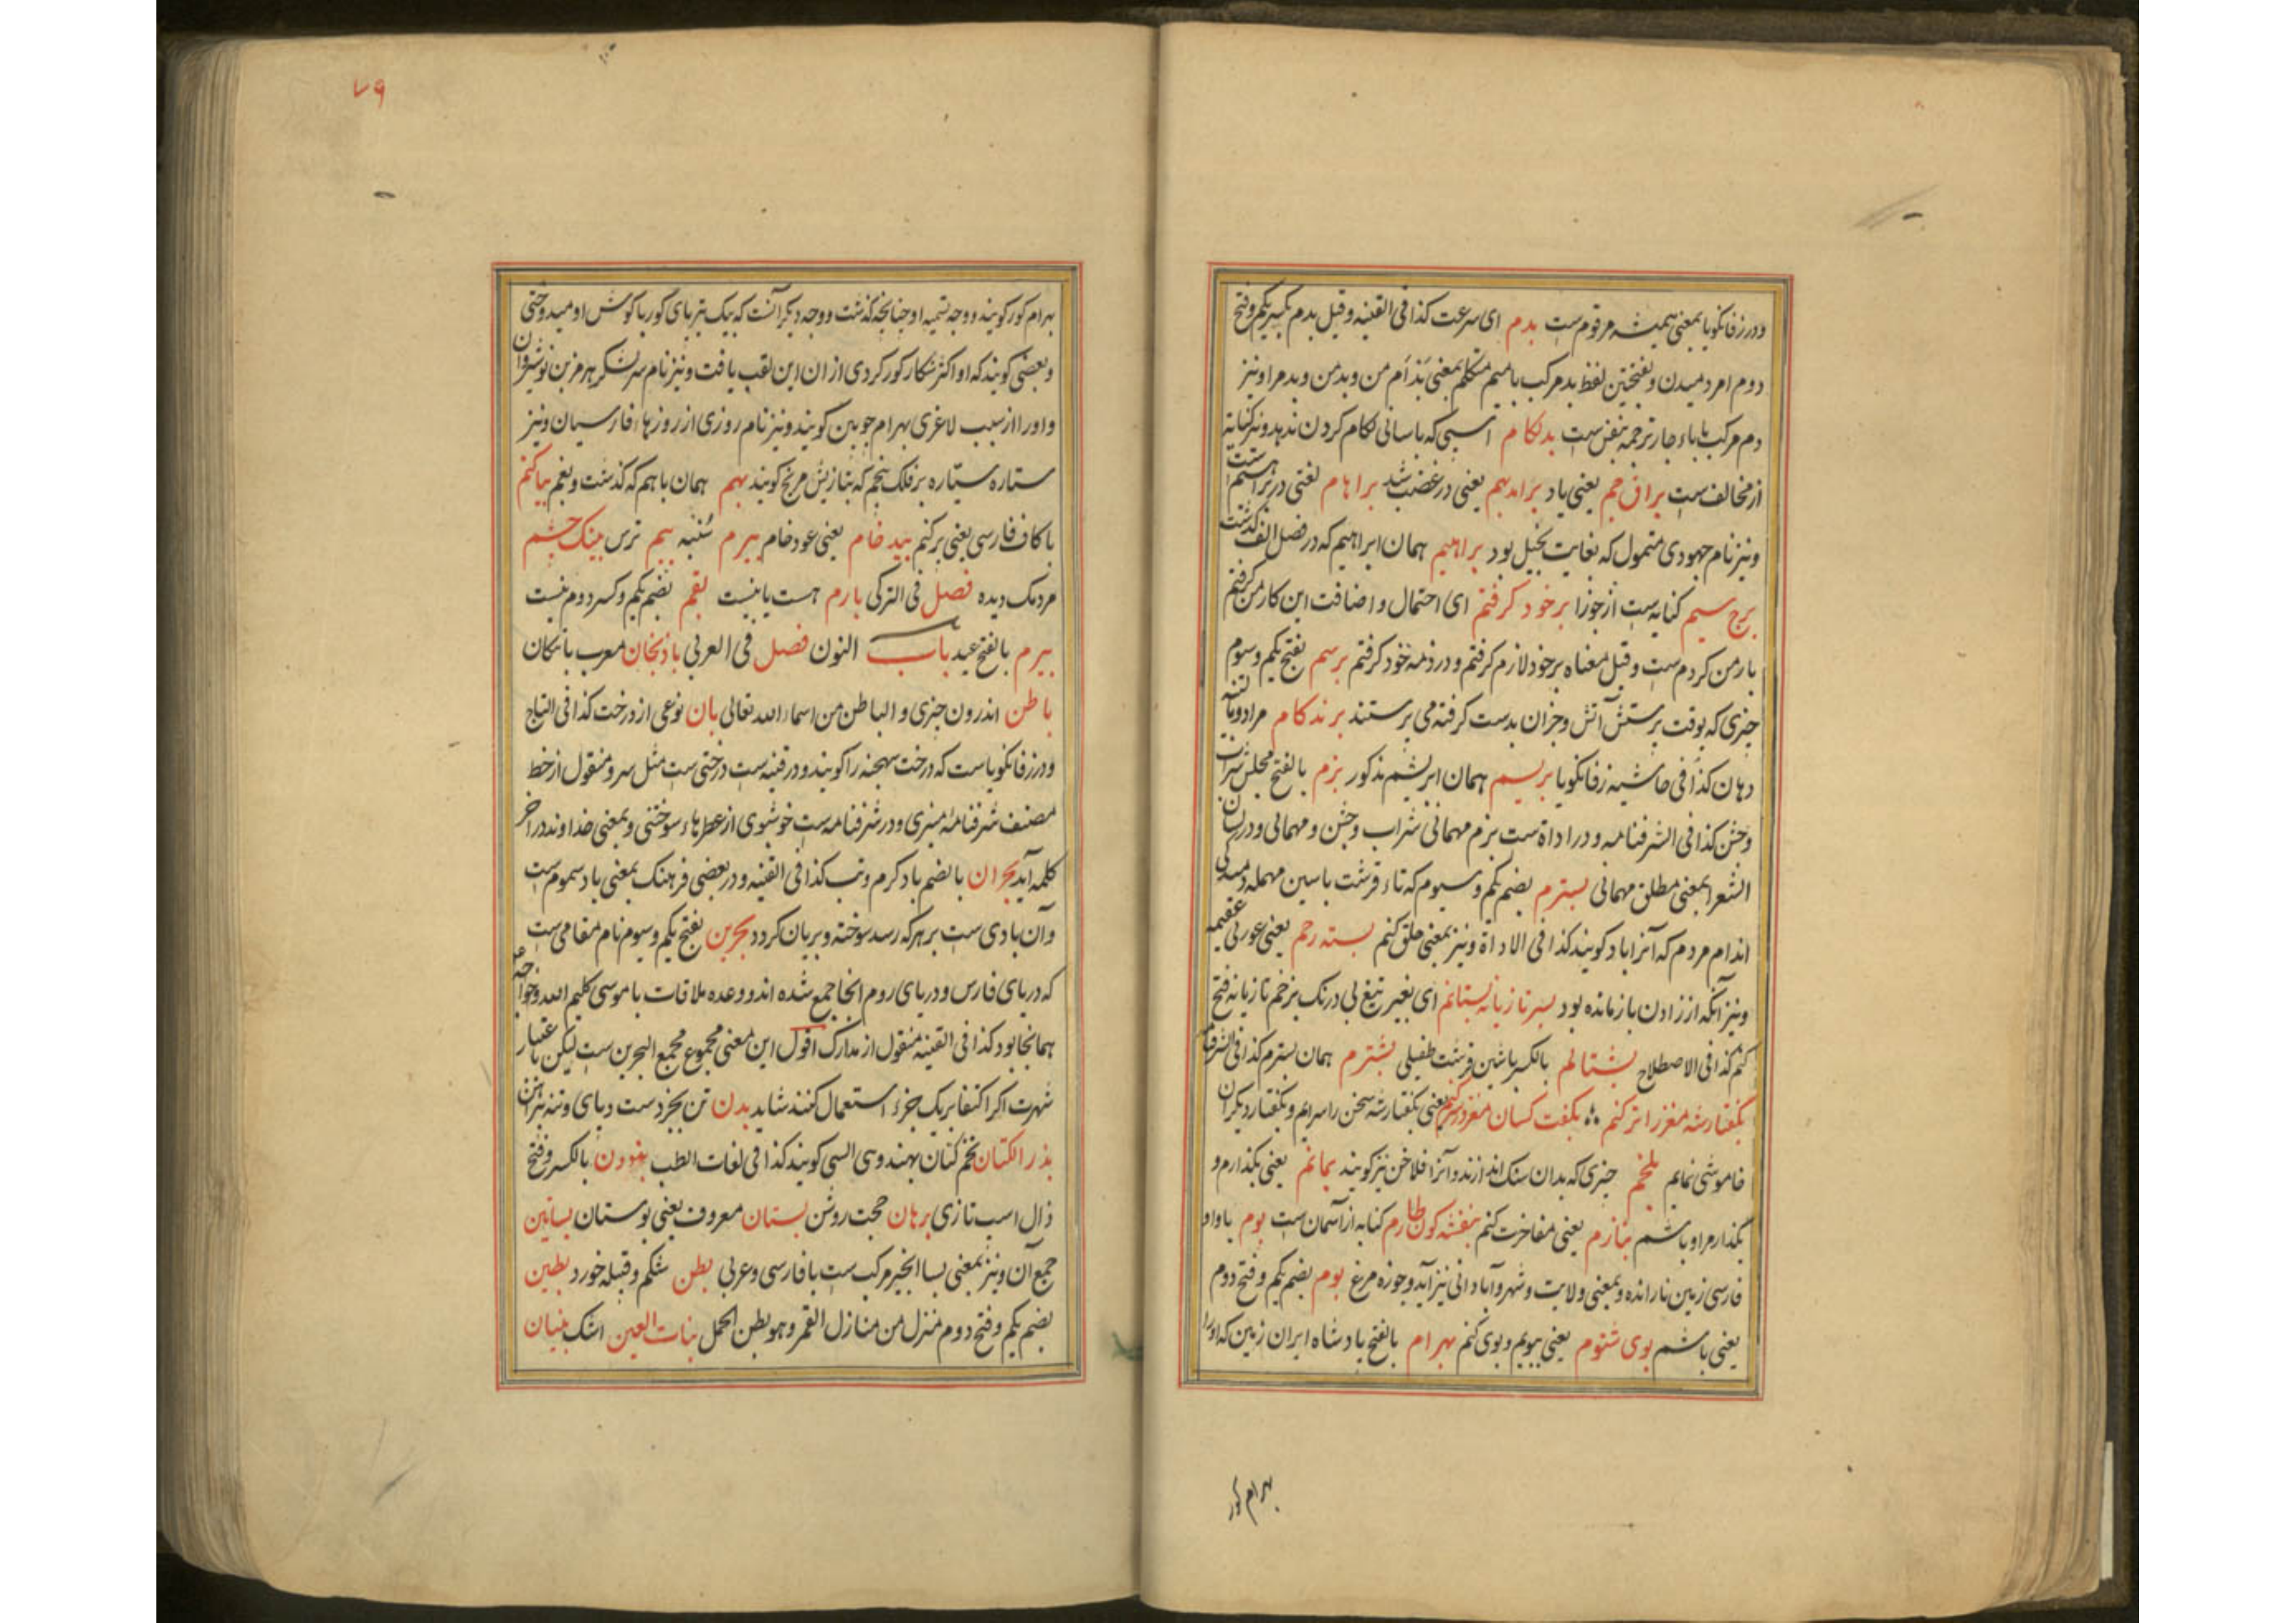 ودر زفانکویا بمعنی همیشه مرقوم ست بدم ای سرعت کذا فی القنیه وقیل بدم بکسر یکم وفتح
دوم امر دمیدن وبفتحتین لفظ بد مرکب با میم متکلم بمعنی بد ام من وبد من وبد مرا ونیز
دم مرکب باباء جار ترجمه بنفس ست بدلکام اسپی که باسانی لکام کردن ندهد ونیز کنایه
از مخالف ست یعنی یاد یعنی در غضب شد براهام لغتی در
ونیز نام جهودی متمول که بغایت بخیل بود براهیم همان ابراهیم که در فصل الف گذشت
برج سیم کنایه ست از جوزا برخود کرفتم ای احتمال واضافت این کار من کرفتم
بار من کردم ست وقیل معناه برخود لازم کرفتم ودر ذمه خود کرفتم برسم بفتح یکم وسوم
چیزی که بوقت پرستش آتش وجزان بدست کرفته می پرستند برندکام مراد
دهان کذا فی حاشیه زفانکویا بریسم همان ابریشم مذکور بزم بالفتح مجلس شراب
وجشن کذا فی الشرفنامه ودر اداة ست بزم مهمانی شراب وجشن ومهمانی ودر لسان
الشعرا بمعنی مطلق مهمانی بسترم بضم یکم وسیوم که تاء قرشت باسین مهمله
اندام مردم که آنرا باد کویند کذا فی الاداة ونیز بمعنی حلق کنم بسته رحم یعنی عورتی عقیمه
ونیز آنکه از زادن بازمانده بود بسر تازیانه بستانم ای بغیر تیغ بی درنک بزخم تازیانه فتح
کنم کذا فی الاصطلاح بشتالم بالکسر باشین قرشت طفیلی بشترم همان بسترم کذا فی الشرفنامه
بکفتار شه مغز را تر کنم بکفت کسان یعنی بکفتار شه سخن را سرایم وبکفتار دیکران
خاموشی نمایم بلخم چیزی که بدان سنک اندازند وآنرا فلاخن نیز کویند بمانم یعنی بکذارم و
بکذار مرا وباشم بنازم یعنی مفاخرت کنم بنفشه کون طارم کنایه از آسمان ست بوم باواو
فارسی زمین نارانده وبمعنی ولایت وشهر وآبادانی نیز آید وجوزه مرغ بوم بضم یکم وفتح دوم
یعنی باشم بوی شنوم یعنی ببویم وبوی کنم بهرام بالفتح پادشاه ایران زمین که اورا
بهرام کور
۷۹
بهرام کور کویند ووجه تسمیه او چنانچه گذشت ووجه دیکر آنست که بیک تیر پای کور باکوش او میدوختی
وبعضی کویند که او اکثر شکار کور کردی از ان این لقب یافت ونیز نام سرلشکر هرمز بن نوشیروان
واورا از سبب لاغری بهرام چوبین کویند ونیز نام روزی از روزها فارسیان ونیز
ستاره سیاره بر فلک پنجم که بتازیش مریخ کویند بهم همان باهم که گذشت وبغم بیاکنم
باکاف فارسی یعنی برکنم بید خام یعنی عود خام بیرم سنبه بیم ترس بینک چشم
مردمک دیده فصل فی الترکی بارم هست یا نیست بقم بضم یکم وکسر دوم نیست
بیرم بالفتح عید باب النون فصل فی العربی باذنجان معرب باتنکان
باطن اندرون چیزی والباطن من اسماء الله تعالی بان نوعی از درخت کذا فی التاج
ودر زفانکویا ست که درخت سهجنه را کویند ودر قنیه ست درختی ست مثل سرو منقول از خط
مصنف شرفنامه منیری ودر شرفنامه ست خوشبوی از عطرهاء سوختنی وبمعنی خداوند در اخر
کلمه آید بحران بالضم باد کرم وتب کذا فی القنیه ودر بعضی فرهنک بمعنی باد سموم ست
وآن بادی ست برهرکه رسد سوخته وبریان کردد بحرین بفتح یکم وسیوم نام مقامی ست
که دریای فارس ودریای روم انجا جمع شده اند ووعده ملاقات باموسی کلیم الله وخواجه خضر
همانجا بود کذا فی القنیه منقول از مدارک اقول این معنی مجموع مجمع البحرین ست لیکن باعتبار
شهرت اکر اکتفا بریک جزء استعمال کنند شاید بدن تن بجز دست وپای وتنه پیراهن
بذر الکتان تخم کتان بهندوی السی کویند کذا فی لغات الطب برذون بالکسر وفتح
ذال اسب تازی برهان حجت روشن بستان معروف یعنی بوستان بساتین
جمع آن ونیز بمعنی بسا انجیر مرکب ست بافارسی وعربی بطن شکم وقبیله خورد بطین
بضم یکم وفتح دوم منزل من منازل القمر وهو بطن الحمل بنات العین اشک بنیان